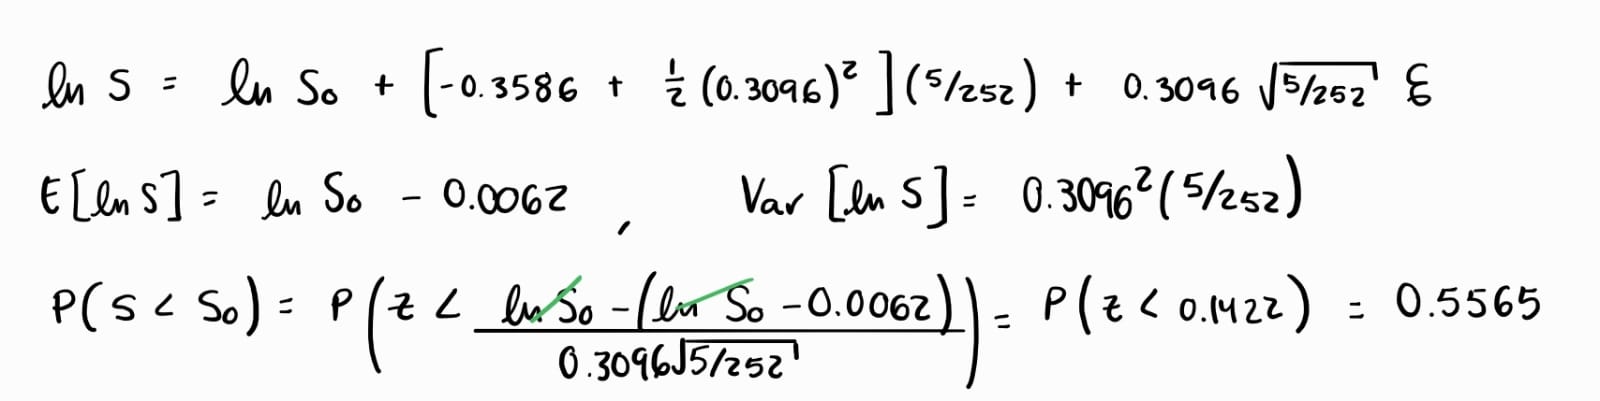 ln S = ln S₀ + [-0.3586 + ½ (0.3096)² ] (5/252) + 0.3096 √5/252 ε
E[ln S] = ln S₀ - 0.0062 , Var [ln S] = 0.3096² (5/252)
P(S < S₀) = P(z < (ln S₀ - (ln S₀ - 0.0062)) / (0.3096√5/252)) = P(z < 0.1422) = 0.5565